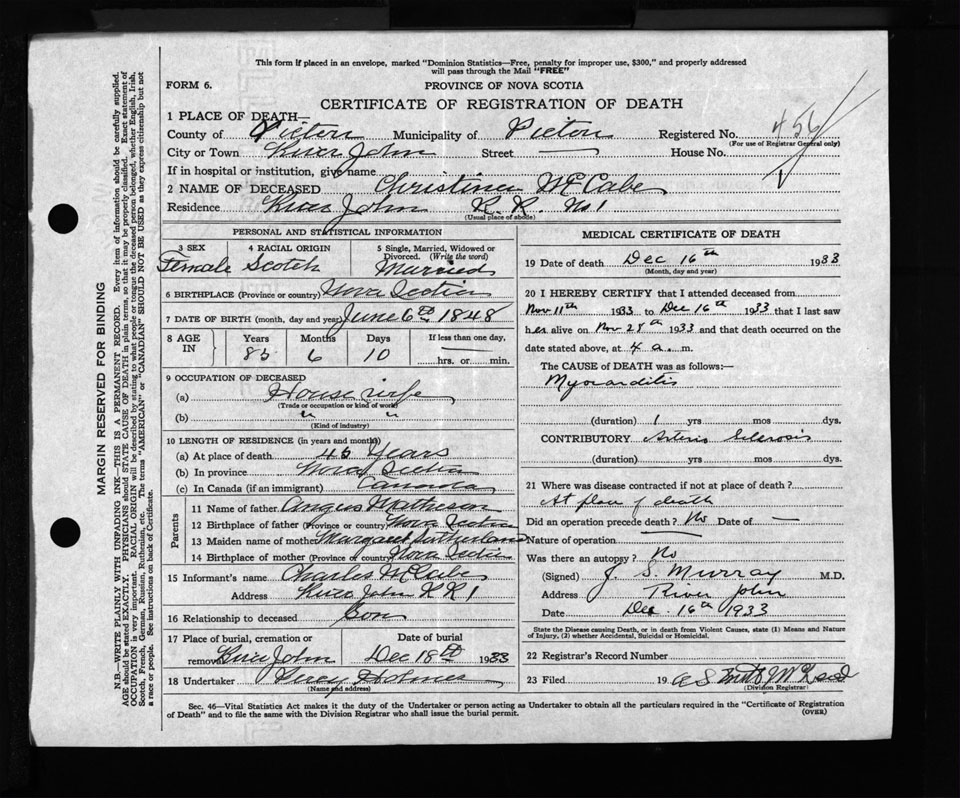 This form if placed in an envelope, marked "Dominion Statistics—Free, penalty for improper use, $300," and properly addressed
will pass through the Mail "FREE"
FORM 6. PROVINCE OF NOVA SCOTIA
CERTIFICATE OF REGISTRATION OF DEATH
1 PLACE OF DEATH—
County of Pictou Municipality of Pictou Registered No. 456
(For use of Registrar General only)
City or Town River John Street — House No.
If in hospital or institution, give name
2 NAME OF DECEASED Christina McCabe
Residence River John R.R. No 1
(Usual place of abode)
PERSONAL AND STATISTICAL INFORMATION
3 SEX 4 RACIAL ORIGIN 5 Single, Married, Widowed or Divorced. (Write the word)
Female Scotch Married
6 BIRTHPLACE (Province or country) Nova Scotia
7 DATE OF BIRTH (month, day and year) June 6th 1848
8 AGE IN Years Months Days If less than one day,
85 6 10 hrs. or min.
9 OCCUPATION OF DECEASED
(a) House wife
(Trade or occupation or kind of work)
(b) " "
(Kind of industry)
10 LENGTH OF RESIDENCE (in years and months)
(a) At place of death Years
(b) In province Nova Scotia
(c) In Canada (if an immigrant) Canada
Parents
11 Name of father Angus Matheson
12 Birthplace of father (Province or country) Nova Scotia
13 Maiden name of mother Margaret Sutherland
14 Birthplace of mother (Province or country) Nova Scotia
15 Informant's name Charles McCabe
Address River John RR 1
16 Relationship to deceased Son
17 Place of burial, cremation or removal River John
Date of burial Dec 18th 1933
18 Undertaker Percy Holmes
(Name and address)
MEDICAL CERTIFICATE OF DEATH
19 Date of death Dec 16th 1933
(Month, day and year)
20 I HEREBY CERTIFY that I attended deceased from
Nov 11th 1933 to Dec 16th 1933 that I last saw
her alive on Nov 28th 1933 and that death occurred on the
date stated above, at 4 a. m.
The CAUSE of DEATH was as follows:—
Myocarditis
(duration) 1 yrs mos dys.
CONTRIBUTORY Arterio Sclerosis
(duration) yrs mos dys.
21 Where was disease contracted if not at place of death?
At place of death
Did an operation precede death? No Date of —
Nature of operation —
Was there an autopsy? No
(Signed) J. S. Murray M.D.
Address River John
Date Dec. 16th 1933
State the Disease causing Death, or in death from Violent Causes, state (1) Means and Nature
of Injury, (2) whether Accidental, Suicidal or Homicidal.
22 Registrar's Record Number
23 Filed 19
(Division Registrar)
Sec. 46—Vital Statistics Act makes it the duty of the Undertaker or person acting as Undertaker to obtain all the particulars required in the "Certificate of Registration
of Death" and to file the same with the Division Registrar who shall issue the burial permit.
(OVER)
MARGIN RESERVED FOR BINDING
N.B.—WRITE PLAINLY WITH UNFADING INK—THIS IS A PERMANENT RECORD. Every item of information should be carefully supplied.
AGE should be stated EXACTLY. PHYSICIANS should STATE CAUSE OF DEATH in plain terms, so that it may be properly classified. Exact statement of
OCCUPATION is very important. RACIAL ORIGIN will be described by stating to what people or tongue the deceased person belonged, whether English, Irish,
Scotch, French, German, Russian, Ruthenian, etc. The terms "AMERICAN" or "CANADIAN" SHOULD NOT BE USED as they express citizenship but not
a race or people. See instructions on back of Certificate.